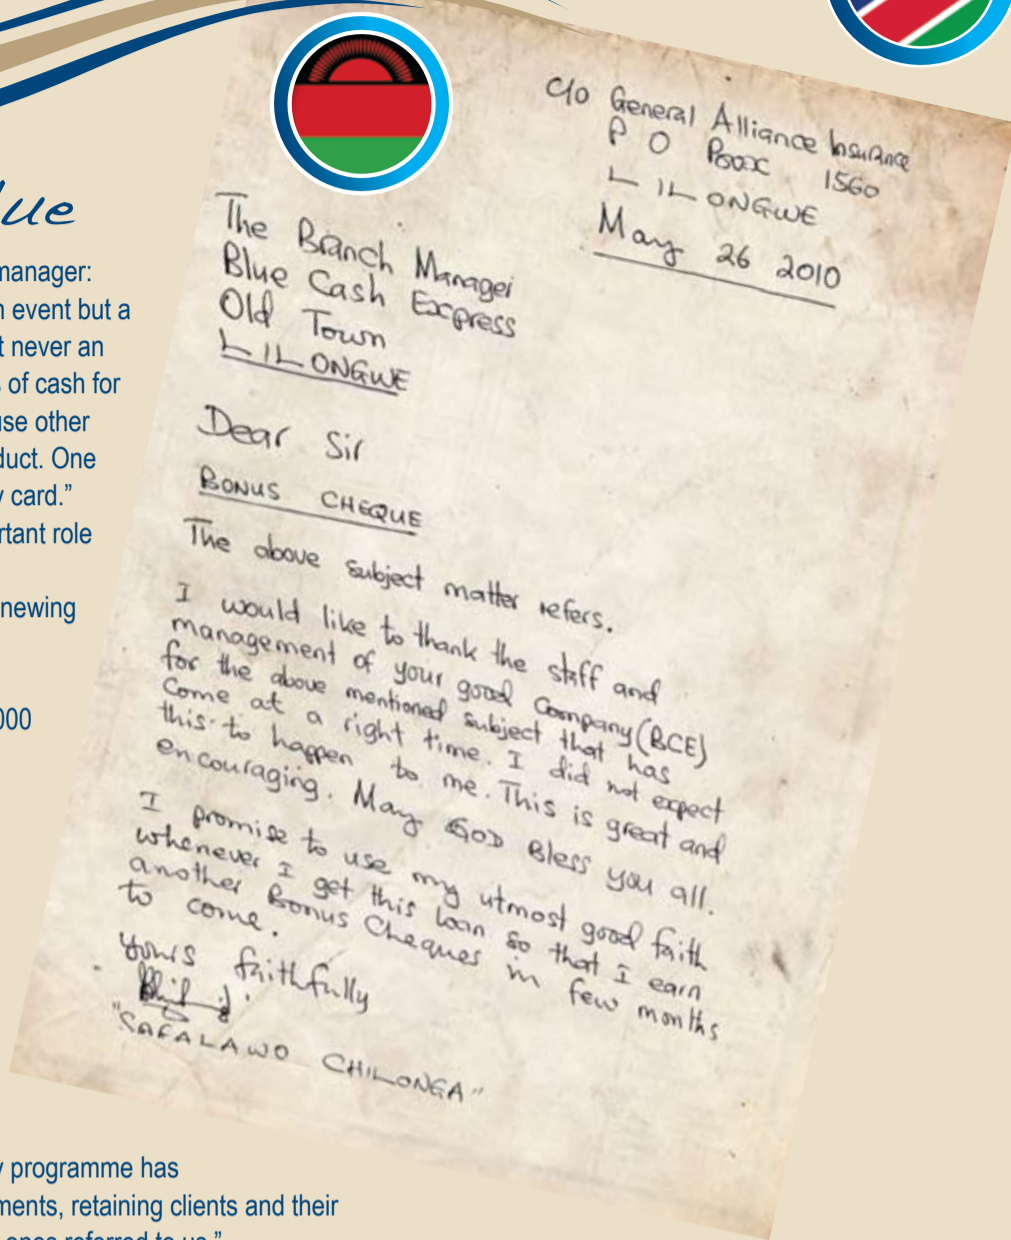 lue
manager:
event but a
t never an
of cash for
use other
duct. One
card.”
rtant role
newing
000
C/o General Alliance Insurance
P O Box 1560
LILONGWE
May 26 2010
The Branch Manager
Blue Cash Express
Old Town
LILONGWE
Dear Sir
BONUS CHEQUE
The above subject matter refers.
I would like to thank the staff and
management of your good Company (BCE)
for the above mentioned subject that has
come at a right time. I did not expect
this to happen to me. This is great and
encouraging. May GOD Bless you all.
I promise to use my utmost good faith
whenever I get this loan so that I earn
another Bonus Cheques in few months
to come.
yours faithfully
"SAFALAWO CHILONGA"
programme has
ments, retaining clients and their
referred to us.”